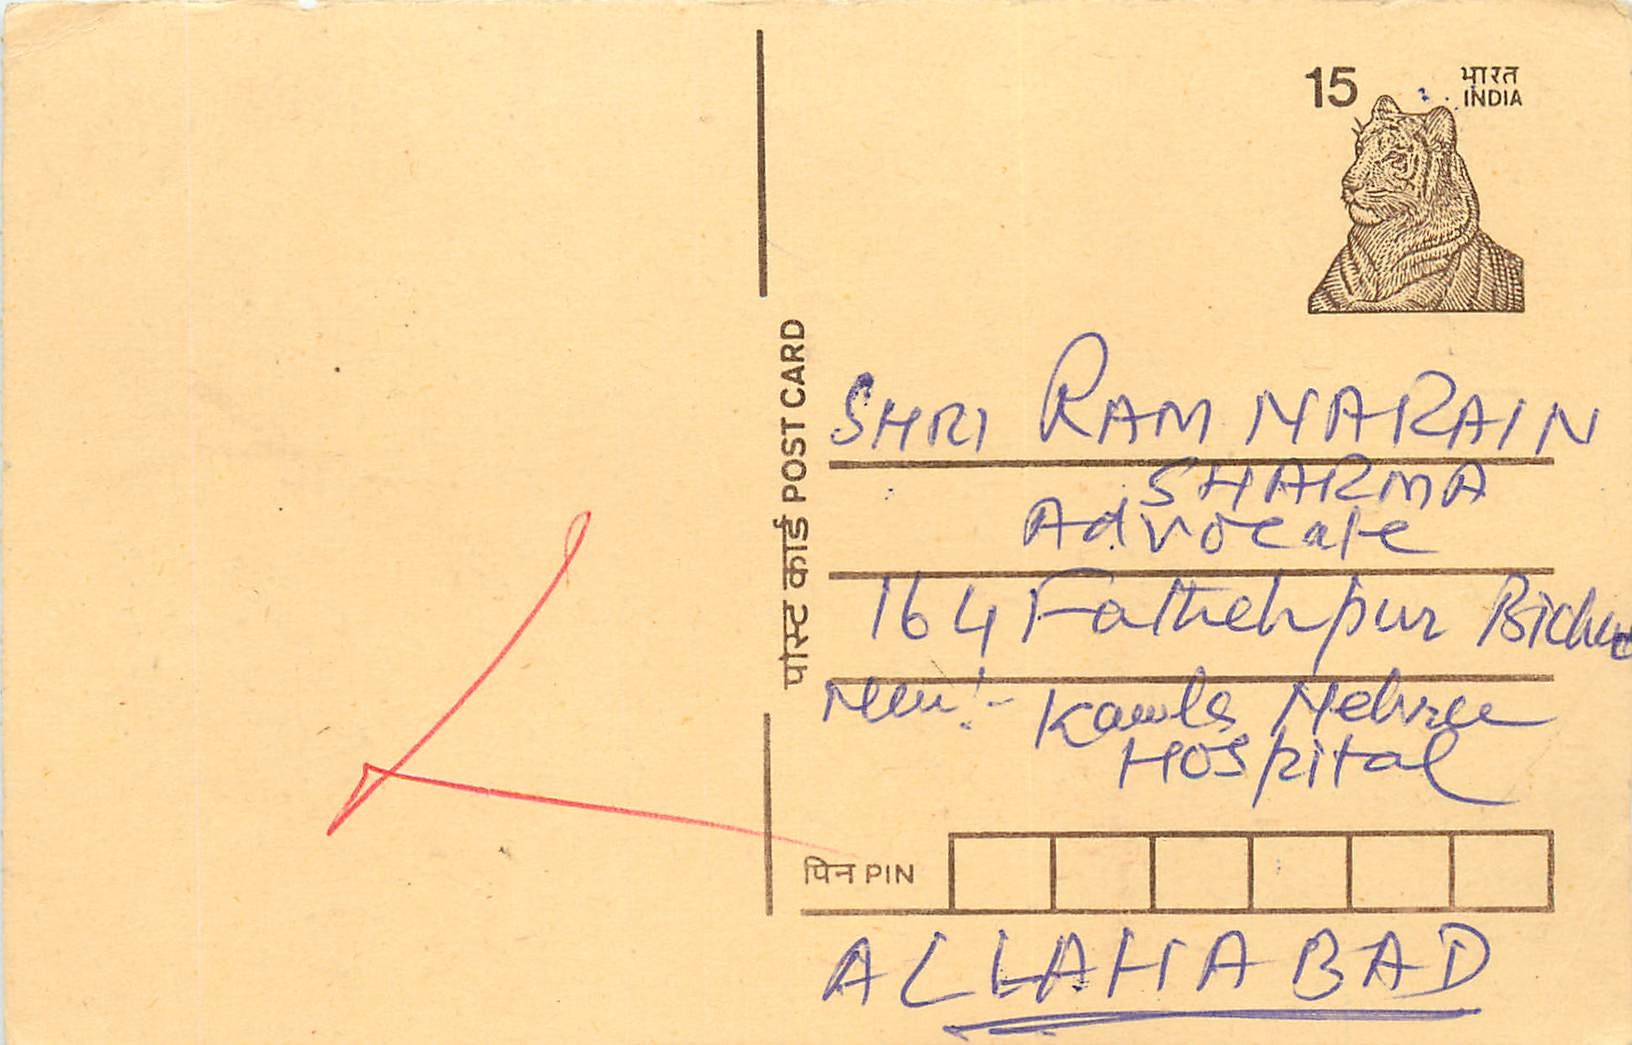 15 भारत
INDIA
पोस्ट कार्ड POST CARD
SHRI RAM NARAIN
SHARMA
Advocate
164 Fathehpur Bichw
Kamla Nehru
Hospital
पिन PIN
ALLAHABAD